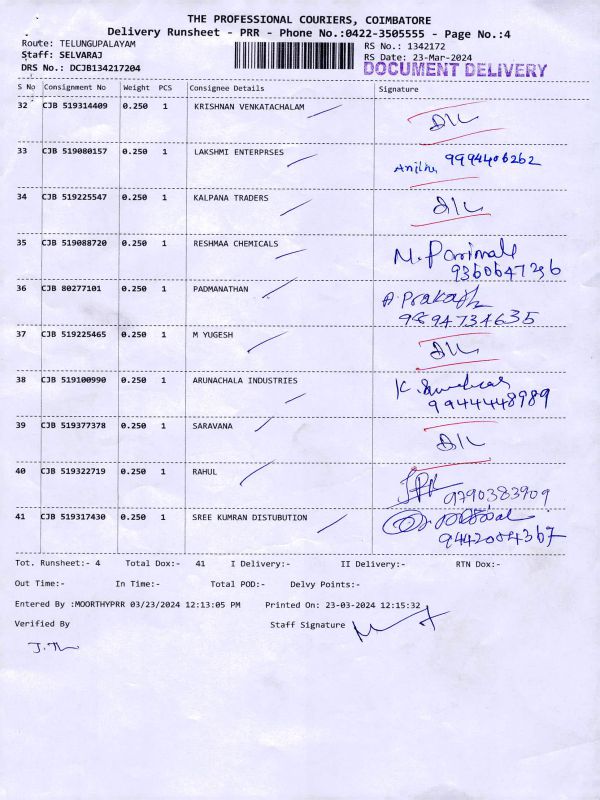 THE PROFESSIONAL COURIERS, COIMBATORE
Delivery Runsheet - PRR - Phone No.:0422-3505555 - Page No.:4
Route: TELUNGUPALAYAM RS No.: 1342172
Staff: SELVARAJ RS Date: 23-Mar-2024
DRS No.: DCJB134217204 DOCUMENT DELIVERY
S No Consignment No Weight PCS Consignee Details Signature
32 CJB 519314409 0.250 1 KRISHNAN VENKATACHALAM D/L
33 CJB 519080157 0.250 1 LAKSHMI ENTERPRSES 9994406262
34 CJB 519225547 0.250 1 KALPANA TRADERS D/L
35 CJB 519088720 0.250 1 RESHMAA CHEMICALS M. Parimala
9360647236
36 CJB 80277101 0.250 1 PADMANATHAN A Prakash
9894734635
37 CJB 519225465 0.250 1 M YUGESH D/L
38 CJB 519100990 0.250 1 ARUNACHALA INDUSTRIES K.
9944448989
39 CJB 519377378 0.250 1 SARAVANA D/L
40 CJB 519322719 0.250 1 RAHUL 9790383909
41 CJB 519317430 0.250 1 SREE KUMRAN DISTUBUTION
Tot. Runsheet:- 4 Total Dox:- 41 I Delivery:- II Delivery:- RTN Dox:-
Out Time:- In Time:- Total POD:- Delvy Points:-
Entered By :MOORTHYPRR 03/23/2024 12:13:05 PM Printed On: 23-03-2024 12:15:32
Verified By Staff Signature